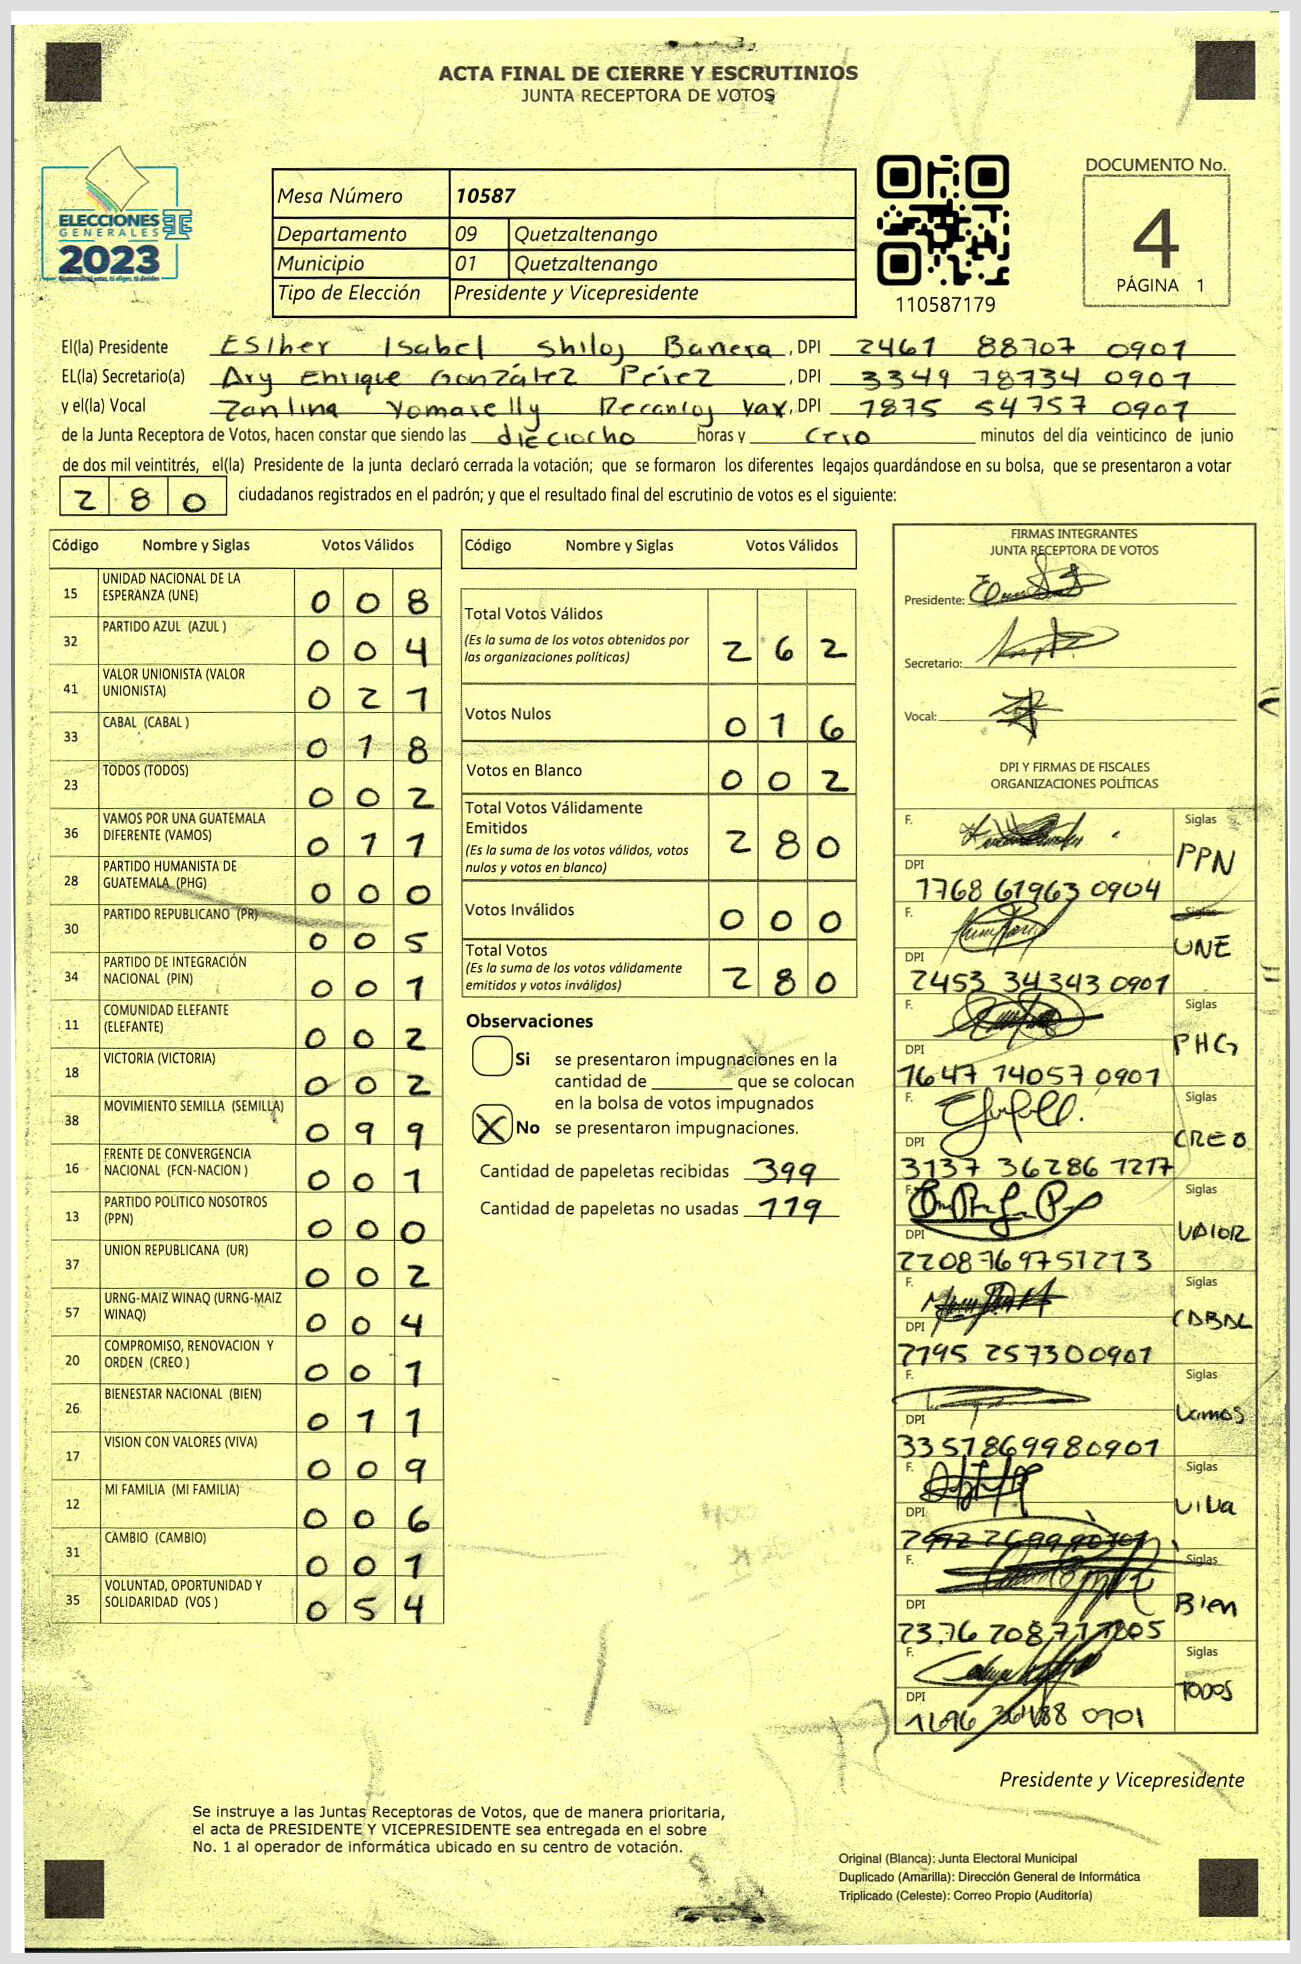 ACTA FINAL DE CIERRE Y ESCRUTINIOS
JUNTA RECEPTORA DE VOTOS
ELECCIONES
GENERALES
2023
Mesa Número 10587
Departamento 09 Quetzaltenango
Municipio 01 Quetzaltenango
Tipo de Elección Presidente y Vicepresidente
110587179
DOCUMENTO No.
4
PÁGINA 1
El(la) Presidente Esther Isabel Shiloj Barrera, DPI 2461 88707 0901
EL(la) Secretario(a) Ary Enrique González Pérez, DPI 3349 78734 0901
y el(la) Vocal Yomaselly, DPI 1875 54757 0901
de la Junta Receptora de Votos, hacen constar que siendo las dieciocho horas y cero minutos del día veinticinco de junio
de dos mil veintitrés, el(la) Presidente de la junta declaró cerrada la votación; que se formaron los diferentes legajos guardándose en su bolsa, que se presentaron a votar
280 ciudadanos registrados en el padrón; y que el resultado final del escrutinio de votos es el siguiente:
Código Nombre y Siglas Votos Válidos
15 UNIDAD NACIONAL DE LA ESPERANZA (UNE) 008
32 PARTIDO AZUL (AZUL ) 004
41 VALOR UNIONISTA (VALOR UNIONISTA) 021
33 CABAL (CABAL ) 018
23 TODOS (TODOS) 002
36 VAMOS POR UNA GUATEMALA DIFERENTE (VAMOS) 011
28 PARTIDO HUMANISTA DE GUATEMALA (PHG) 000
30 PARTIDO REPUBLICANO (PR) 005
34 PARTIDO DE INTEGRACIÓN NACIONAL (PIN) 001
11 COMUNIDAD ELEFANTE (ELEFANTE) 002
18 VICTORIA (VICTORIA) 002
38 MOVIMIENTO SEMILLA (SEMILLA) 099
16 FRENTE DE CONVERGENCIA NACIONAL (FCN-NACION ) 001
13 PARTIDO POLITICO NOSOTROS (PPN) 000
37 UNION REPUBLICANA (UR) 002
57 URNG-MAIZ WINAQ (URNG-MAIZ WINAQ) 004
20 COMPROMISO, RENOVACION Y ORDEN (CREO ) 001
26 BIENESTAR NACIONAL (BIEN) 011
17 VISION CON VALORES (VIVA) 009
12 MI FAMILIA (MI FAMILIA) 006
31 CAMBIO (CAMBIO) 001
35 VOLUNTAD, OPORTUNIDAD Y SOLIDARIDAD (VOS ) 054
Código Nombre y Siglas Votos Válidos
Total Votos Válidos 262
(Es la suma de los votos obtenidos por
las organizaciones políticas)
Votos Nulos 016
Votos en Blanco 002
Total Votos Válidamente
Emitidos 280
(Es la suma de los votos válidos, votos
nulos y votos en blanco)
Votos Inválidos 000
Total Votos 280
(Es la suma de los votos válidamente
emitidos y votos inválidos)
Observaciones
Si se presentaron impugnaciones en la
cantidad de ________ que se colocan
en la bolsa de votos impugnados
X No se presentaron impugnaciones.
Cantidad de papeletas recibidas 399
Cantidad de papeletas no usadas 119
FIRMAS INTEGRANTES
JUNTA RECEPTORA DE VOTOS
Presidente:
Secretario:
Vocal:
DPI Y FIRMAS DE FISCALES
ORGANIZACIONES POLÍTICAS
F. Siglas PPN
DPI 1768 61963 0904
F. Siglas UNE
DPI 2453 34343 0901
F. Siglas PHG
DPI 1647 14057 0901
F. Siglas CREO
DPI 3137 36286 1217
F. Siglas VALOR
DPI 2208769751213
F. Siglas CABAL
DPI 2195 257300901
F. Siglas Vamos
DPI 3351869980901
F. Siglas VIVA
DPI
F. Siglas Bien
DPI
F. Siglas TODOS
DPI
Presidente y Vicepresidente
Se instruye a las Juntas Receptoras de Votos, que de manera prioritaria,
el acta de PRESIDENTE Y VICEPRESIDENTE sea entregada en el sobre
No. 1 al operador de informática ubicado en su centro de votación.
Original (Blanca): Junta Electoral Municipal
Duplicado (Amarilla): Dirección General de Informática
Triplicado (Celeste): Correo Propio (Auditoría)